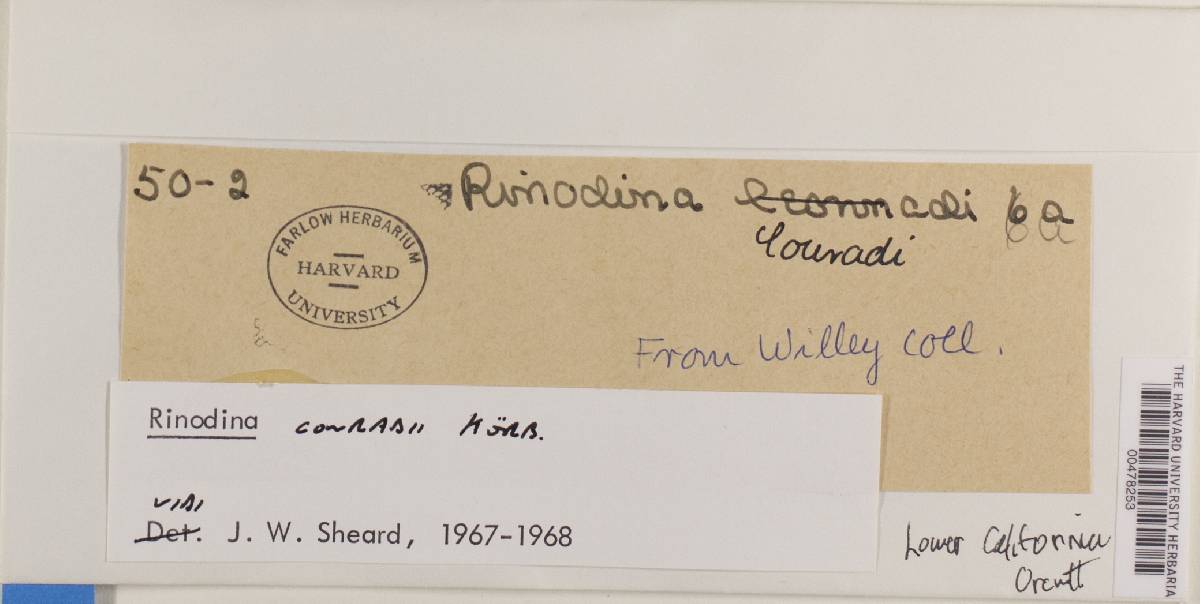 50-2 Rinodina cadi 6a
Couradi
FARLOW HERBARIUM
HARVARD
UNIVERSITY
From Willey coll.
Rinodina conRADii KÖRB.
vidi
Det. J. W. Sheard, 1967-1968
Lower California
Orcutt
THE HARVARD UNIVERSITY HERBARIA
00478253